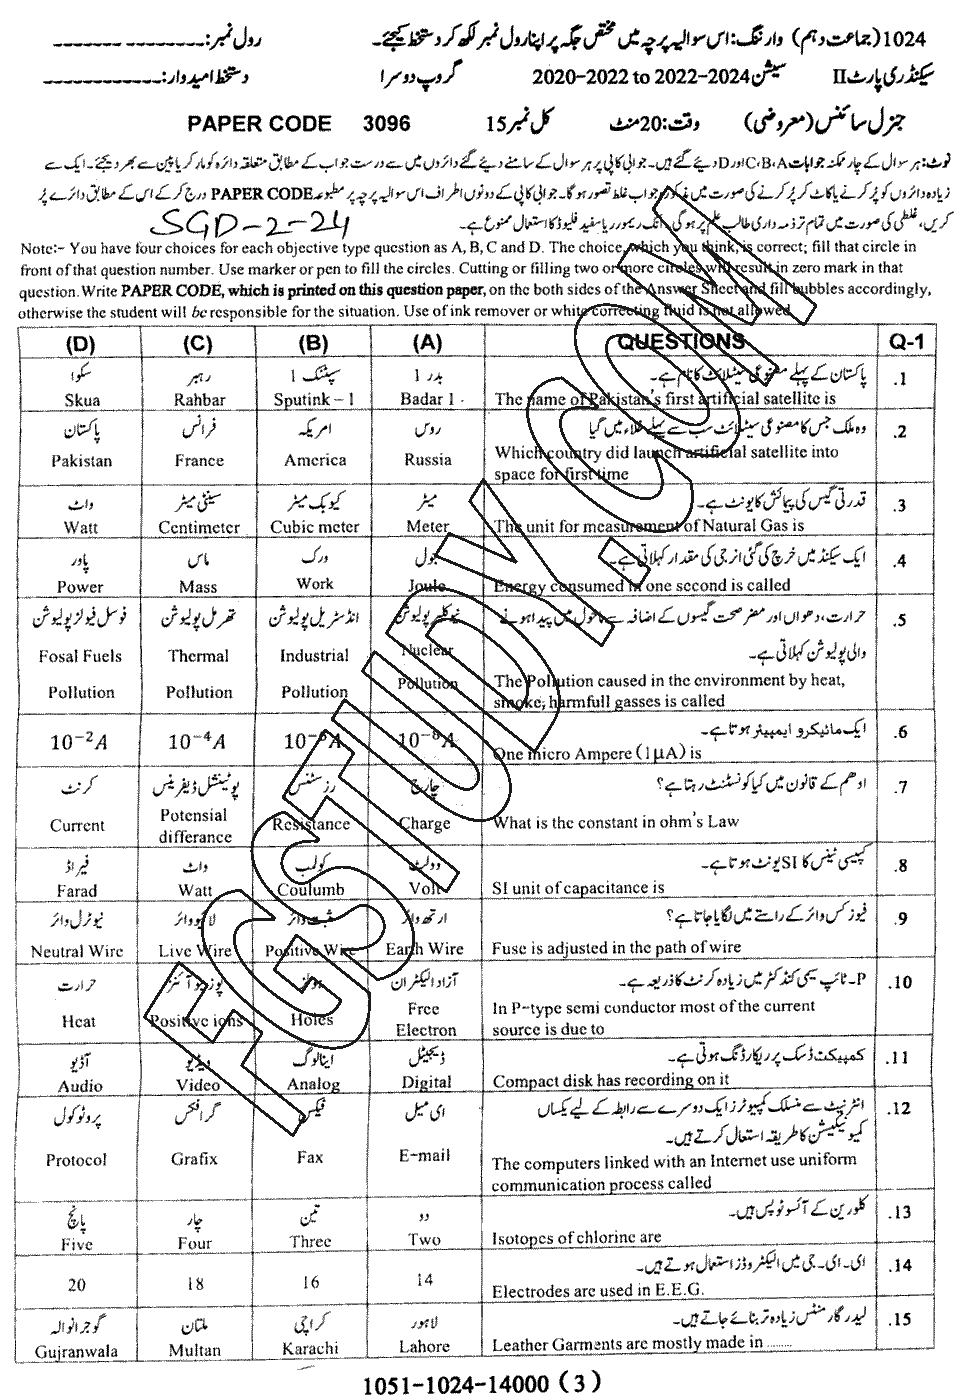 1024 (جماعت دہم) وارننگ: اس سوالیہ پرچہ میں مختص جگہ پر اپنا رول نمبر لکھ کر دستخط کیجئے۔ رول نمبر:
سیکنڈری پارٹ II سیشن 2020-2022 to 2022-2024 گروپ دوسرا دستخط امیدوار:
جنرل سائنس (معروضی) وقت: 20 منٹ کل نمبر 15 PAPER CODE 3096
نوٹ: ہر سوال کے چار ممکنہ جوابات C،B،A اور D دیئے گئے ہیں۔ جوابی کاپی پر ہر سوال کے سامنے دیئے گئے دائروں میں سے درست جواب کے مطابق متعلقہ دائرہ کو مارکر یا پین سے بھر دیجئے۔ ایک سے
زیادہ دائروں کو پُر کرنے یا کاٹ کر پُر کرنے کی صورت میں مذکورہ جواب غلط تصور ہوگا۔ جوابی کاپی کے دونوں اطراف اس سوالیہ پرچہ پر مطبوعہ PAPER CODE درج کر کے اس کے مطابق دائرے پُر
کریں، غلطی کی صورت میں تمام تر ذمہ داری طالب علم پر ہوگی۔ انک ریمور یا سفید فلیوڈ کا استعمال ممنوع ہے۔
SGD-2-24
Note:- You have four choices for each objective type question as A, B, C and D. The choice which you think is correct; fill that circle in
front of that question number. Use marker or pen to fill the circles. Cutting or filling two or more circles will result in zero mark in that
question. Write PAPER CODE, which is printed on this question paper, on the both sides of the Answer Sheet and fill bubbles accordingly,
otherwise the student will be responsible for the situation. Use of ink remover or white correcting fluid is not allowed
(D) (C) (B) (A) QUESTIONS Q-1
سکوا رہبر سپٹنک 1 بدر 1 پاکستان کے پہلے مصنوعی سیٹلائٹ کا نام ہے۔ .1
Skua Rahbar Sputink – 1 Badar 1 The name of Pakistan's first artificial satellite is
پاکستان فرانس امریکہ روس وہ ملک جس کا مصنوعی سیٹلائٹ سب سے پہلے خلاء میں گیا .2
Pakistan France America Russia Which country did launch artificial satellite into
space for first time
واٹ سینٹی میٹر کیوبک میٹر میٹر قدرتی گیس کی پیمائش کا یونٹ ہے۔ .3
Watt Centimeter Cubic meter Meter The unit for measurement of Natural Gas is
پاور ماس ورک جول ایک سیکنڈ میں خرچ کی گئی انرجی کی مقدار کہلاتی ہے۔ .4
Power Mass Work Joule Energy consumed in one second is called
فوسل فیولز پولیوشن تھرمل پولیوشن انڈسٹریل پولیوشن نیوکلیئر پولیوشن حرارت، دھواں اور مضر صحت گیسوں کے اضافہ سے ماحول میں پیدا ہونے .5
والی پولیوشن کہلاتی ہے۔
Fosal Fuels Thermal Industrial Nuclear
Pollution Pollution Pollution Pollution The Pollution caused in the environment by heat,
smoke, harmfull gasses is called
10⁻²A 10⁻⁴A 10⁻⁶A 10⁻⁸A ایک مائیکرو ایمپیئر ہوتا ہے۔ .6
One micro Ampere (1µA) is
کرنٹ پوٹینشل ڈیفرینس رزسٹنس چارج اوھم کے قانون میں کیا کونسٹنٹ رہتا ہے؟ .7
Current Potensial differance Resistance Charge What is the constant in ohm's Law
فیراڈ واٹ کولمب وولٹ کپیسی ٹینس کا SI یونٹ ہوتا ہے۔ .8
Farad Watt Coulumb Volt SI unit of capacitance is
نیوٹرل وائر لائیو وائر مثبت وائر ارتھ وائر فیوز کس وائر کے راستے میں لگایا جاتا ہے؟ .9
Neutral Wire Live Wire Positive Wire Earth Wire Fuse is adjusted in the path of wire
حرارت پوزیٹو آئنز ہولز آزاد الیکٹران P-ٹائپ سیمی کنڈکٹر میں زیادہ کرنٹ کا ذریعہ ہے۔ .10
Heat Positive ions Holes Free Electron In P-type semi conductor most of the current
source is due to
آڈیو ویڈیو اینالوگ ڈیجیٹل کمپیکٹ ڈسک پر ریکارڈنگ ہوتی ہے۔ .11
Audio Video Analog Digital Compact disk has recording on it
پروٹوکول گرافکس فیکس ای میل انٹرنیٹ سے منسلک کمپیوٹرز ایک دوسرے سے رابطہ کے لیے یکساں .12
کمیونیکیشن کا طریقہ استعمال کرتے ہیں۔
Protocol Grafix Fax E-mail The computers linked with an Internet use uniform
communication process called
پانچ چار تین دو کلورین کے آئسوٹوپس ہیں۔ .13
Five Four Three Two Isotopes of chlorine are
20 18 16 14 ای۔ای۔جی میں الیکٹروڈز استعمال ہوتے ہیں۔ .14
Electrodes are used in E.E.G.
گوجرانوالہ ملتان کراچی لاہور لیدر گارمنٹس زیادہ تر بنائے جاتے ہیں۔ .15
Gujranwala Multan Karachi Lahore Leather Garments are mostly made in ........
1051-1024-14000 (3)
FGSTUDY.COM